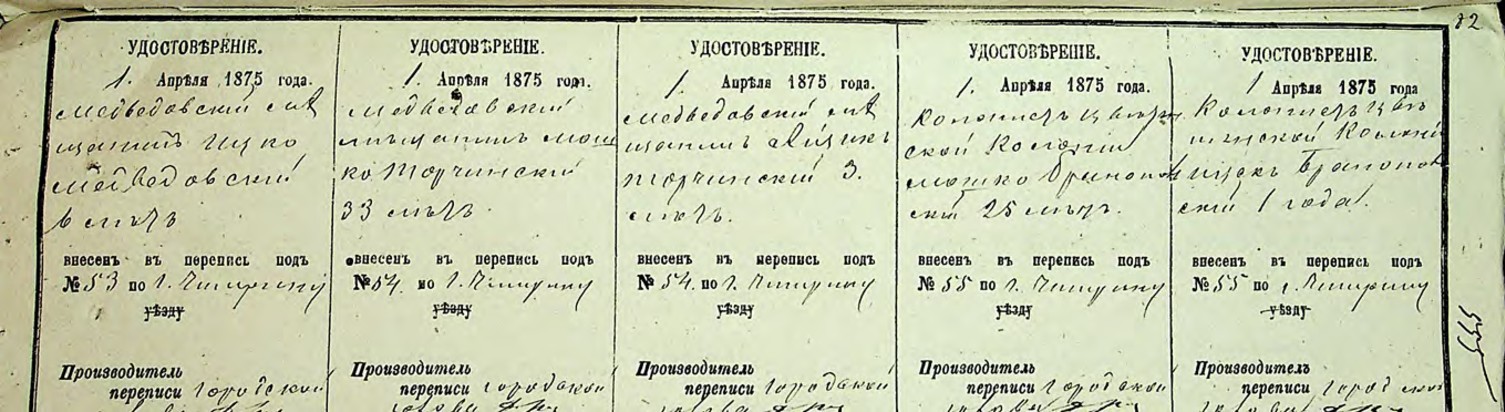 82
УДОСТОВѢРЕНІЕ.
1. Апрѣля 1875 года.
Медведовский мѣ
щанинъ Ицко
Медведовский
6 лѣтъ
внесенъ въ перепись подъ
№ 53 по г. Чигирину
уѣзду
Производитель
переписи городской
УДОСТОВѢРЕНІЕ.
1. Апрѣля 1875 года.
Медведовский
мѣщанинъ Мош
ко Торчинский
33 лѣтъ.
внесенъ въ перепись подъ
№ 54. по г. Чигирину
уѣзду
Производитель
переписи городской
УДОСТОВѢРЕНІЕ.
1. Апрѣля 1875 года.
Медведовский мѣ
щанинъ
Торчинский 3.
лѣтъ.
внесенъ въ перепись подъ
№ 54. по г. Чигирину
уѣзду
Производитель
переписи городской
УДОСТОВѢРЕНІЕ.
1. Апрѣля 1875 года.
Колонистъ
ской Колоніи
Мошко
скій 25 лѣтъ.
внесенъ въ перепись подъ
№ 55 по г. Чигирину
уѣзду
Производитель
переписи городской
УДОСТОВѢРЕНІЕ.
1 Апрѣля 1875 года
Колонистъ
Колоніи
скій 1 года.
внесенъ въ перепись подъ
№ 55 по г. Чигирину
уѣзду
Производитель
переписи городской